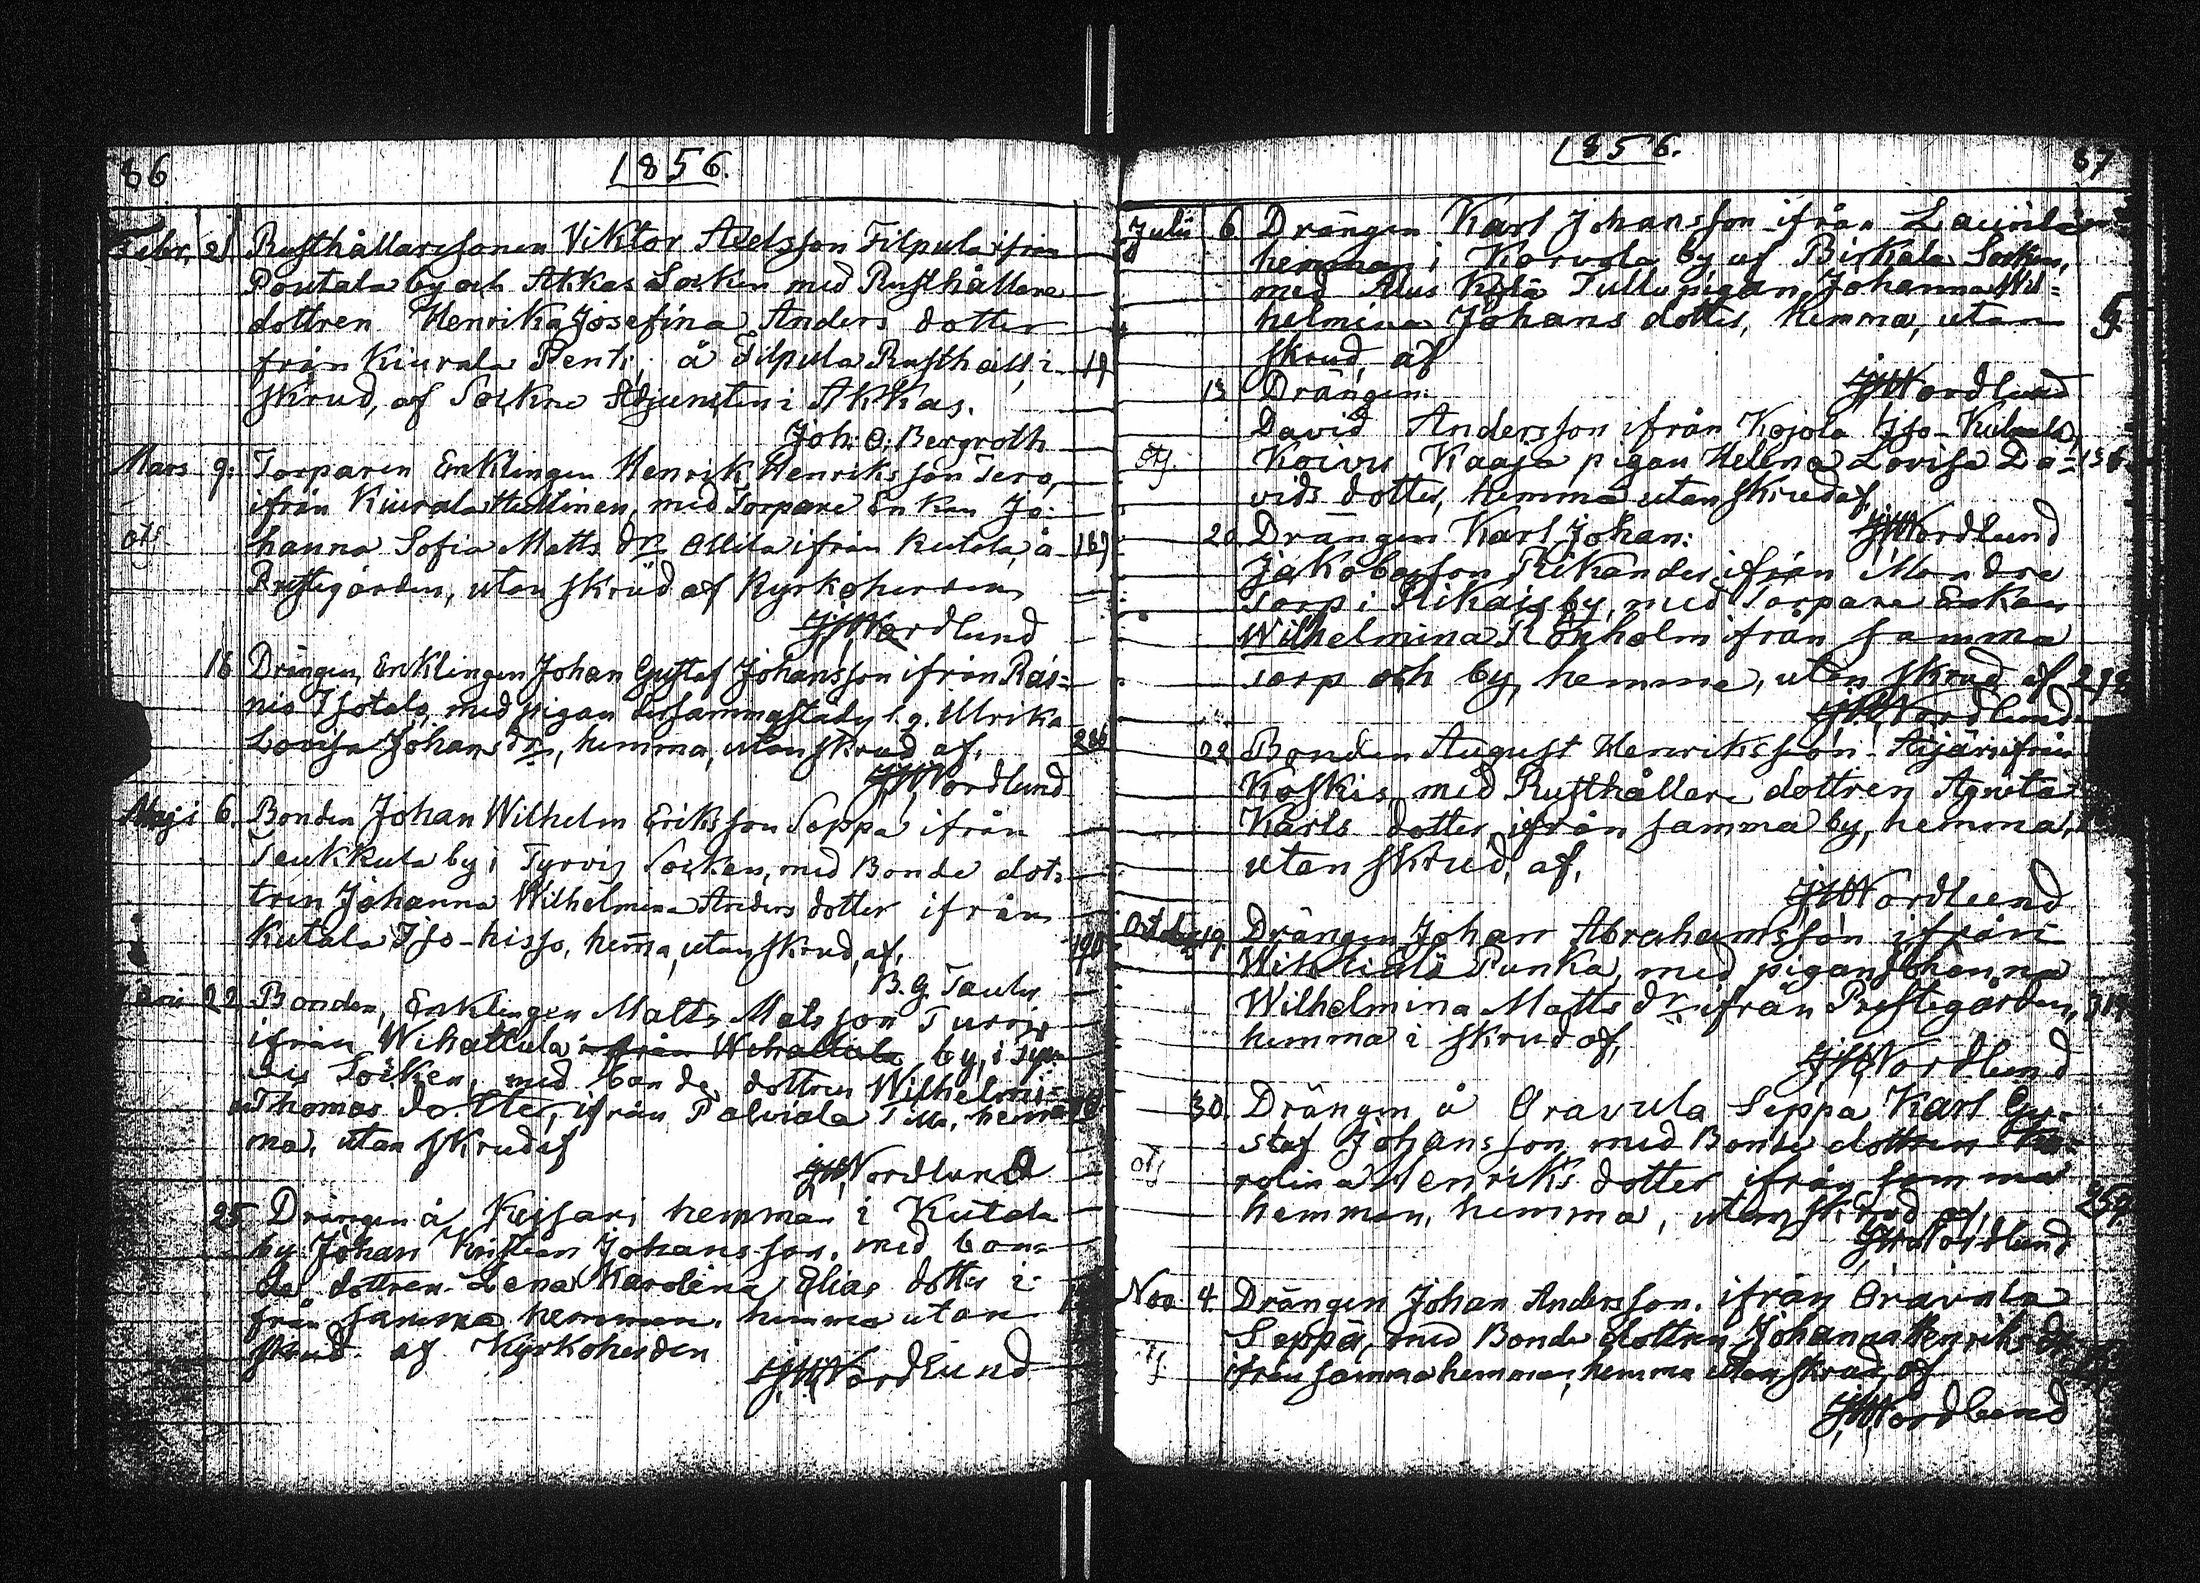 86
1856.
Febr. 21 Rusthållaressonen Viktor Axelsson Filpula ifrån
Pontala by och Akkas Socken med Rusthållare
dottren Henrika Josefina Anders dotter
från Kiurala Penti, å Filpula Rusthåll, i 19
skrud, af Sockne Adjuncten i Akkas.
Joh: O: Bergroth
Mars 9. Torparen Enklingen Henrik Henriksson Tero,
ifrån Kiurala Hellinen, med Torpare Enkan Jo-
otf. hanna Sofia Matts dr Ollila ifrån Kutala, å 169
Prestegården, utan skrud af Kyrkoherden
JHNordlund
16 Drängen, Enklingen Johan Gustaf Johansson ifrån Rai-
nio Isotalo, med pigan dersammastädes Ulrika
Lovisa Johans dr, hemma, utan skrud af,
JHNordlund
Maji 6. Bonden Johan Wilhelm Eriksson Seppä ifrån
Teukkula by i Tyrvis Socken, med Bonde dot-
tren Johanna Wilhelmina Anders dotter ifrån
Kutala Iso-hisso, hemma, utan skrud, af, 190
B. G. Tauler
22 Bonden, Enklingen Matts Matsson
ifrån Wihattula ifrån Wihattula by, i Tyr-
vis Socken, med bonde dottren Wilhelmi-
na Thomas dotter, ifrån Palviala hem-
ma, utan skrud af
JHNordlund
25 Drängen å Keisari hemman i Kutala
by Johan Kristian Johansson, med bon-
de dottren Lena Karolina Elias dotter i-
från samma hemman, hemma utan
skrud af Kyrkoherden
JHNordlund
1856.
87
Julii 6. Drängen Karl Johansson ifrån Laurila
hemman i Korvola by af Birkala Socken,
med Kylä Tullu pigan Johanna Wil-
helmina Johans dotter, hemma, utan 5.
skrud, af
JHNordlund
13 Drängen
David Andersson ifrån Kojola Iso-
otf. Koivu Kaaja pigan Helena Lovisa Da-
vids dotter, hemma utan skrud af,
JHNordlund
20. Drängen Karl Johan
Jakobsson ifrån
torp i by, med Torpare Enkan
Wilhelmina Rönholm ifrån samma
torp och by, hemma, utan skrud af
JHNordlund
22 Bonden August Henriksson Äijä ifrån
Koskis, med Rusthållare dottren Agneta
Karls dotter ifrån samma by, hemma,
utan skrud, af,
JHNordlund
October 19. Drängen Johan Abrahamsson ifrån
Punka, med pigan Johanna
Wilhelmina Matts dr ifrån Prestegården,
hemma i skrud af,
JHNordlund
30. Drängen å Oravula Seppä Karl Gu-
staf Johansson, med Bonde dottren Ka-
otf rolina Henriks dotter ifrån samma
hemman, hemma, utan skrud af, 259.
JHNordlund
Nov. 4. Drängen Johan Andersson, ifrån Oravula
Seppä, med Bonde dottren Johanna Henriks dr
otf ifrån samma hemman, hemma utan skrud, af
JHNordlund